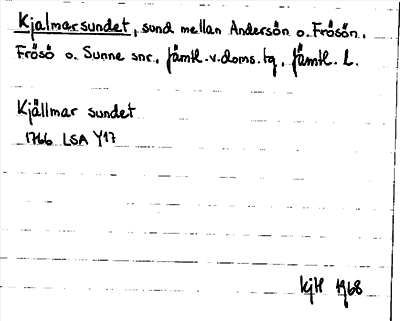 Kjalmarsundet, sund mellan Andersön o. Frösön,
Frösö o. Sunne snr., Jämtl. v. doms. tg, Jämtl. l.
Kjällmar sundet
1766 LSA Y17
KjH 1968